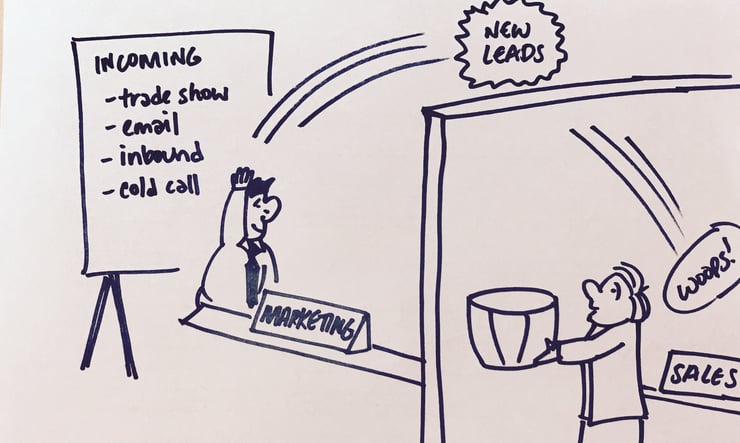 INCOMING
- trade show
- email
- inbound
- cold call
NEW
LEADS
MARKETING
WOOPS!
SALES